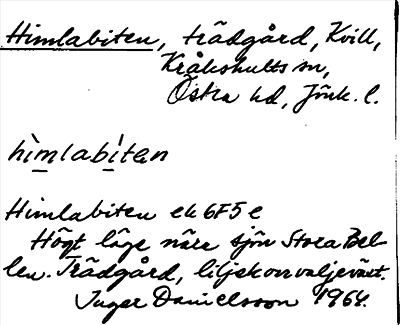 Himlabiten, trädgård, Kvill,
Kråkshults sn,
Östra hd, Jönk. l.
hìmlabítan
Himlabiten ek 6F5e
Högt läge nära sjön Stora Bel-
len. Trädgård, liljekonvaljeväxt.
Inger Danielsson 1964.